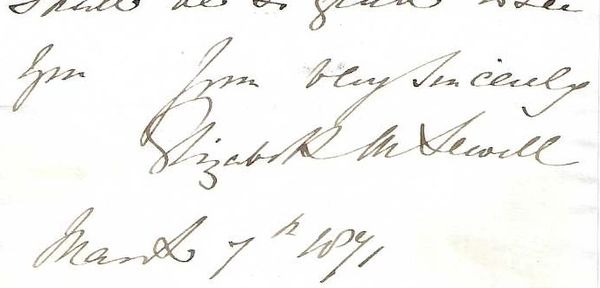 shall be so glad to see
you yours very sincerely
Elizabeth M Sewell
March 7th 1871